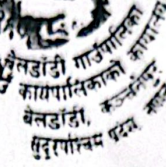 बेलडाँडी गाउँपालिका
कार्यपालिकाको कार्यालय
बेलडाँडी, कञ्चनपुर
सुदूरपश्चिम प्रदेश, नेपाल